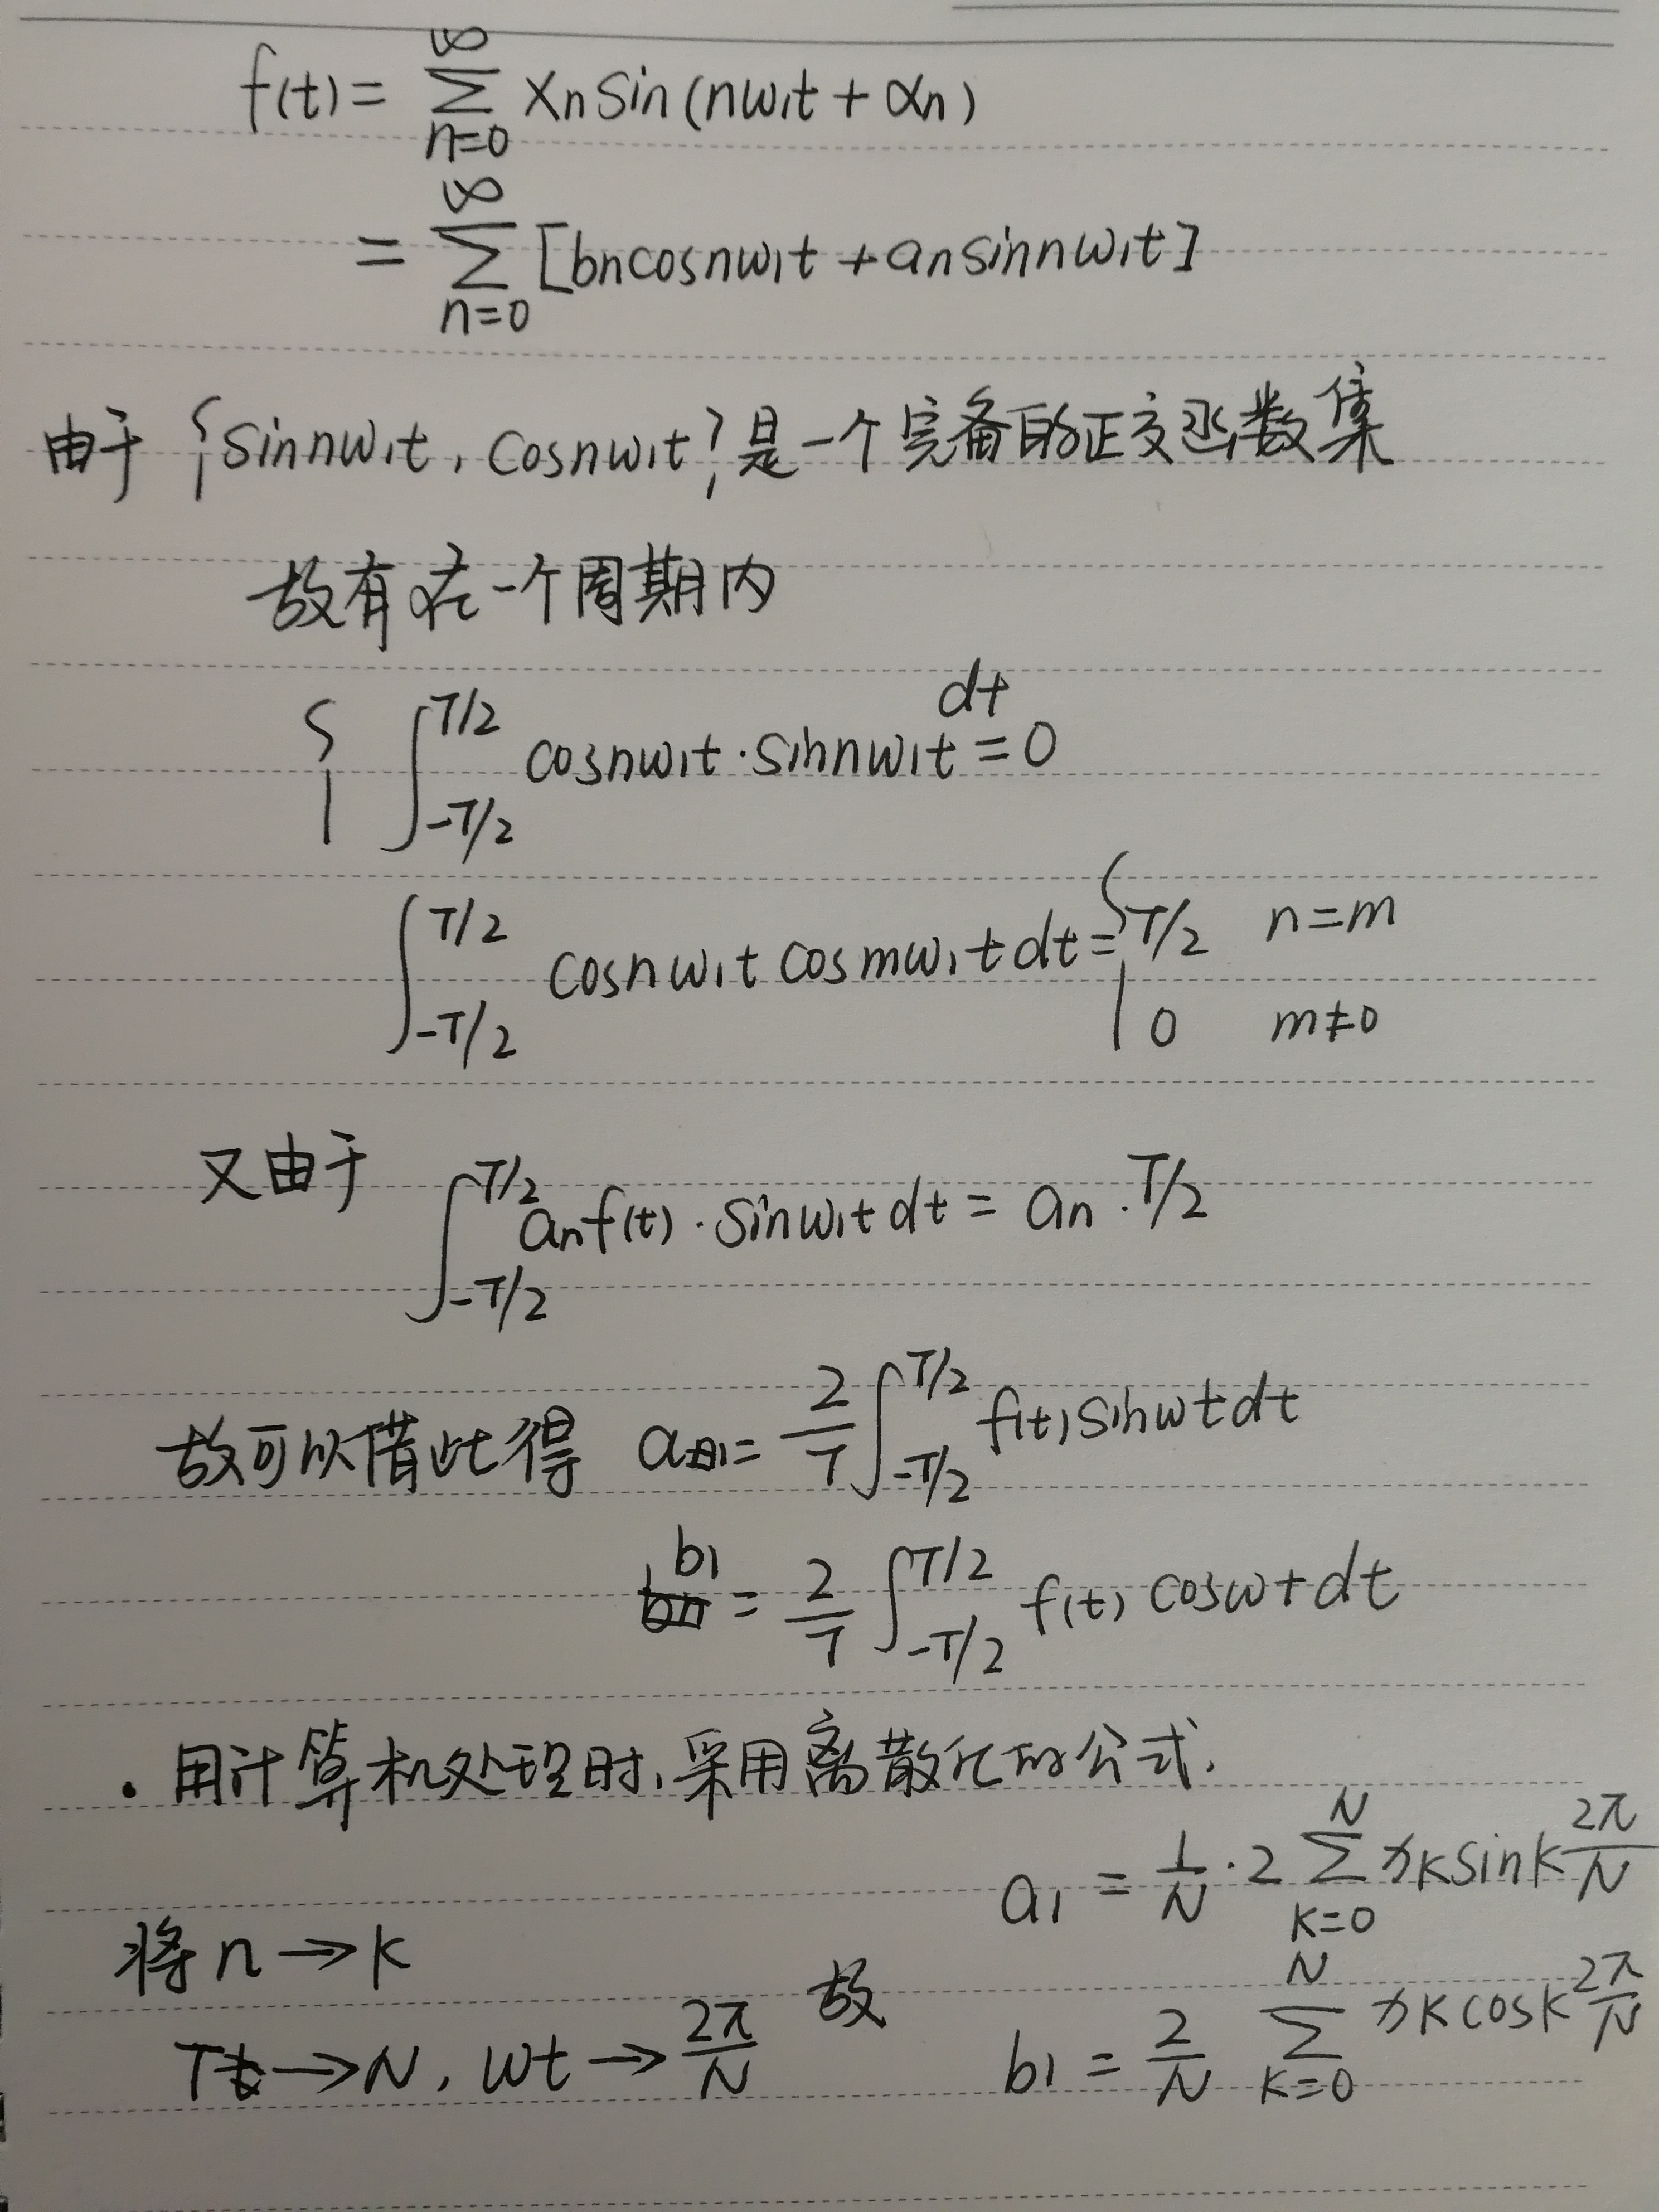 f(t) = ∞∑n=0 Xn sin(nw₁t + αn)
= ∞∑n=0 [bn cosnw₁t + an sinnw₁t]
由于 {sinnw₁t, cosnw₁t} 是一个完备的正交函数集
故有在一个周期内
{ ∫_{-T/2}^{T/2} cosnw₁t · sinnw₁t dt = 0
∫_{-T/2}^{T/2} cosnw₁t cosmw₁t dt = { T/2 n=m
0 m≠0
又由于 ∫_{-T/2}^{T/2} an f(t) · sinw₁t dt = an · T/2
故可以借此得 a1 = 2/T ∫_{-T/2}^{T/2} f(t) sinwt dt
b1 = 2/T ∫_{-T/2}^{T/2} f(t) coswt dt
· 用计算机处理时,采用离散化的公式.
a1 = 1/N · 2 N∑k=0 xk sink 2π/N
将 n → k
故
T → N, wt → 2π/N
b1 = 2/N N∑k=0 xk cosk 2π/N